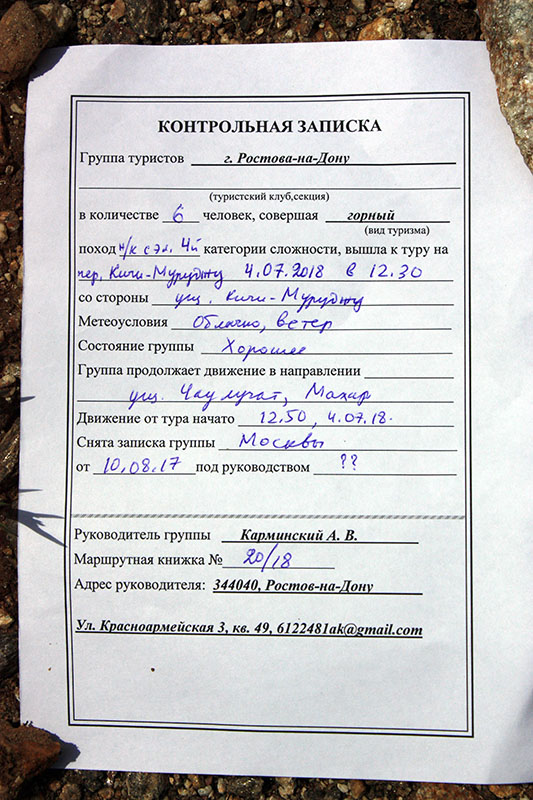 КОНТРОЛЬНАЯ ЗАПИСКА
Группа туристов г. Ростова-на-Дону
(туристский клуб,секция)
в количестве 6 человек, совершая горный
(вид туризма)
поход н/к с эл. 4й категории сложности, вышла к туру на
пер. Кичи-Муруджу 4.07.2018 в 12.30
со стороны ущ. Кичи-Муруджу
Метеоусловия Облачно, ветер
Состояние группы Хорошее
Группа продолжает движение в направлении
ущ. Чаулучат, Махар
Движение от тура начато 12.50, 4.07.18.
Снята записка группы Москвы
от 10.08.17 под руководством ??
Руководитель группы Карминский А. В.
Маршрутная книжка № 20/18
Адрес руководителя: 344040, Ростов-на-Дону
Ул. Красноармейская 3, кв. 49, 6122481ak@gmail.com